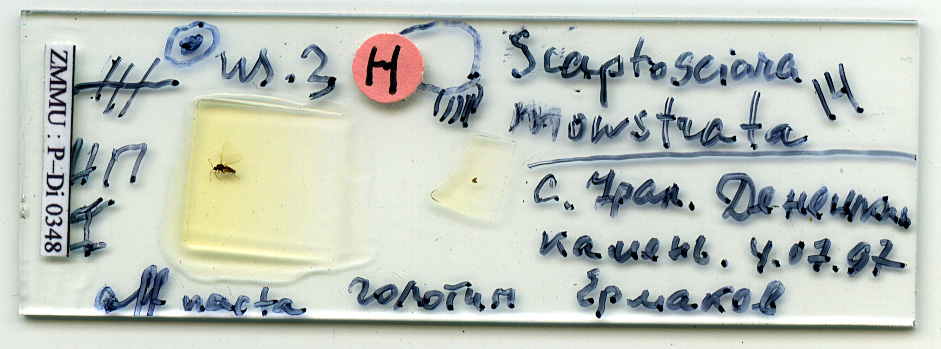 ZMMU : P-Di 0348
из. 3
H
Scaptosciara
monstrata
С. Урал. Денежкин
камень. 4.07.97
aff nacta голотип Ермаков